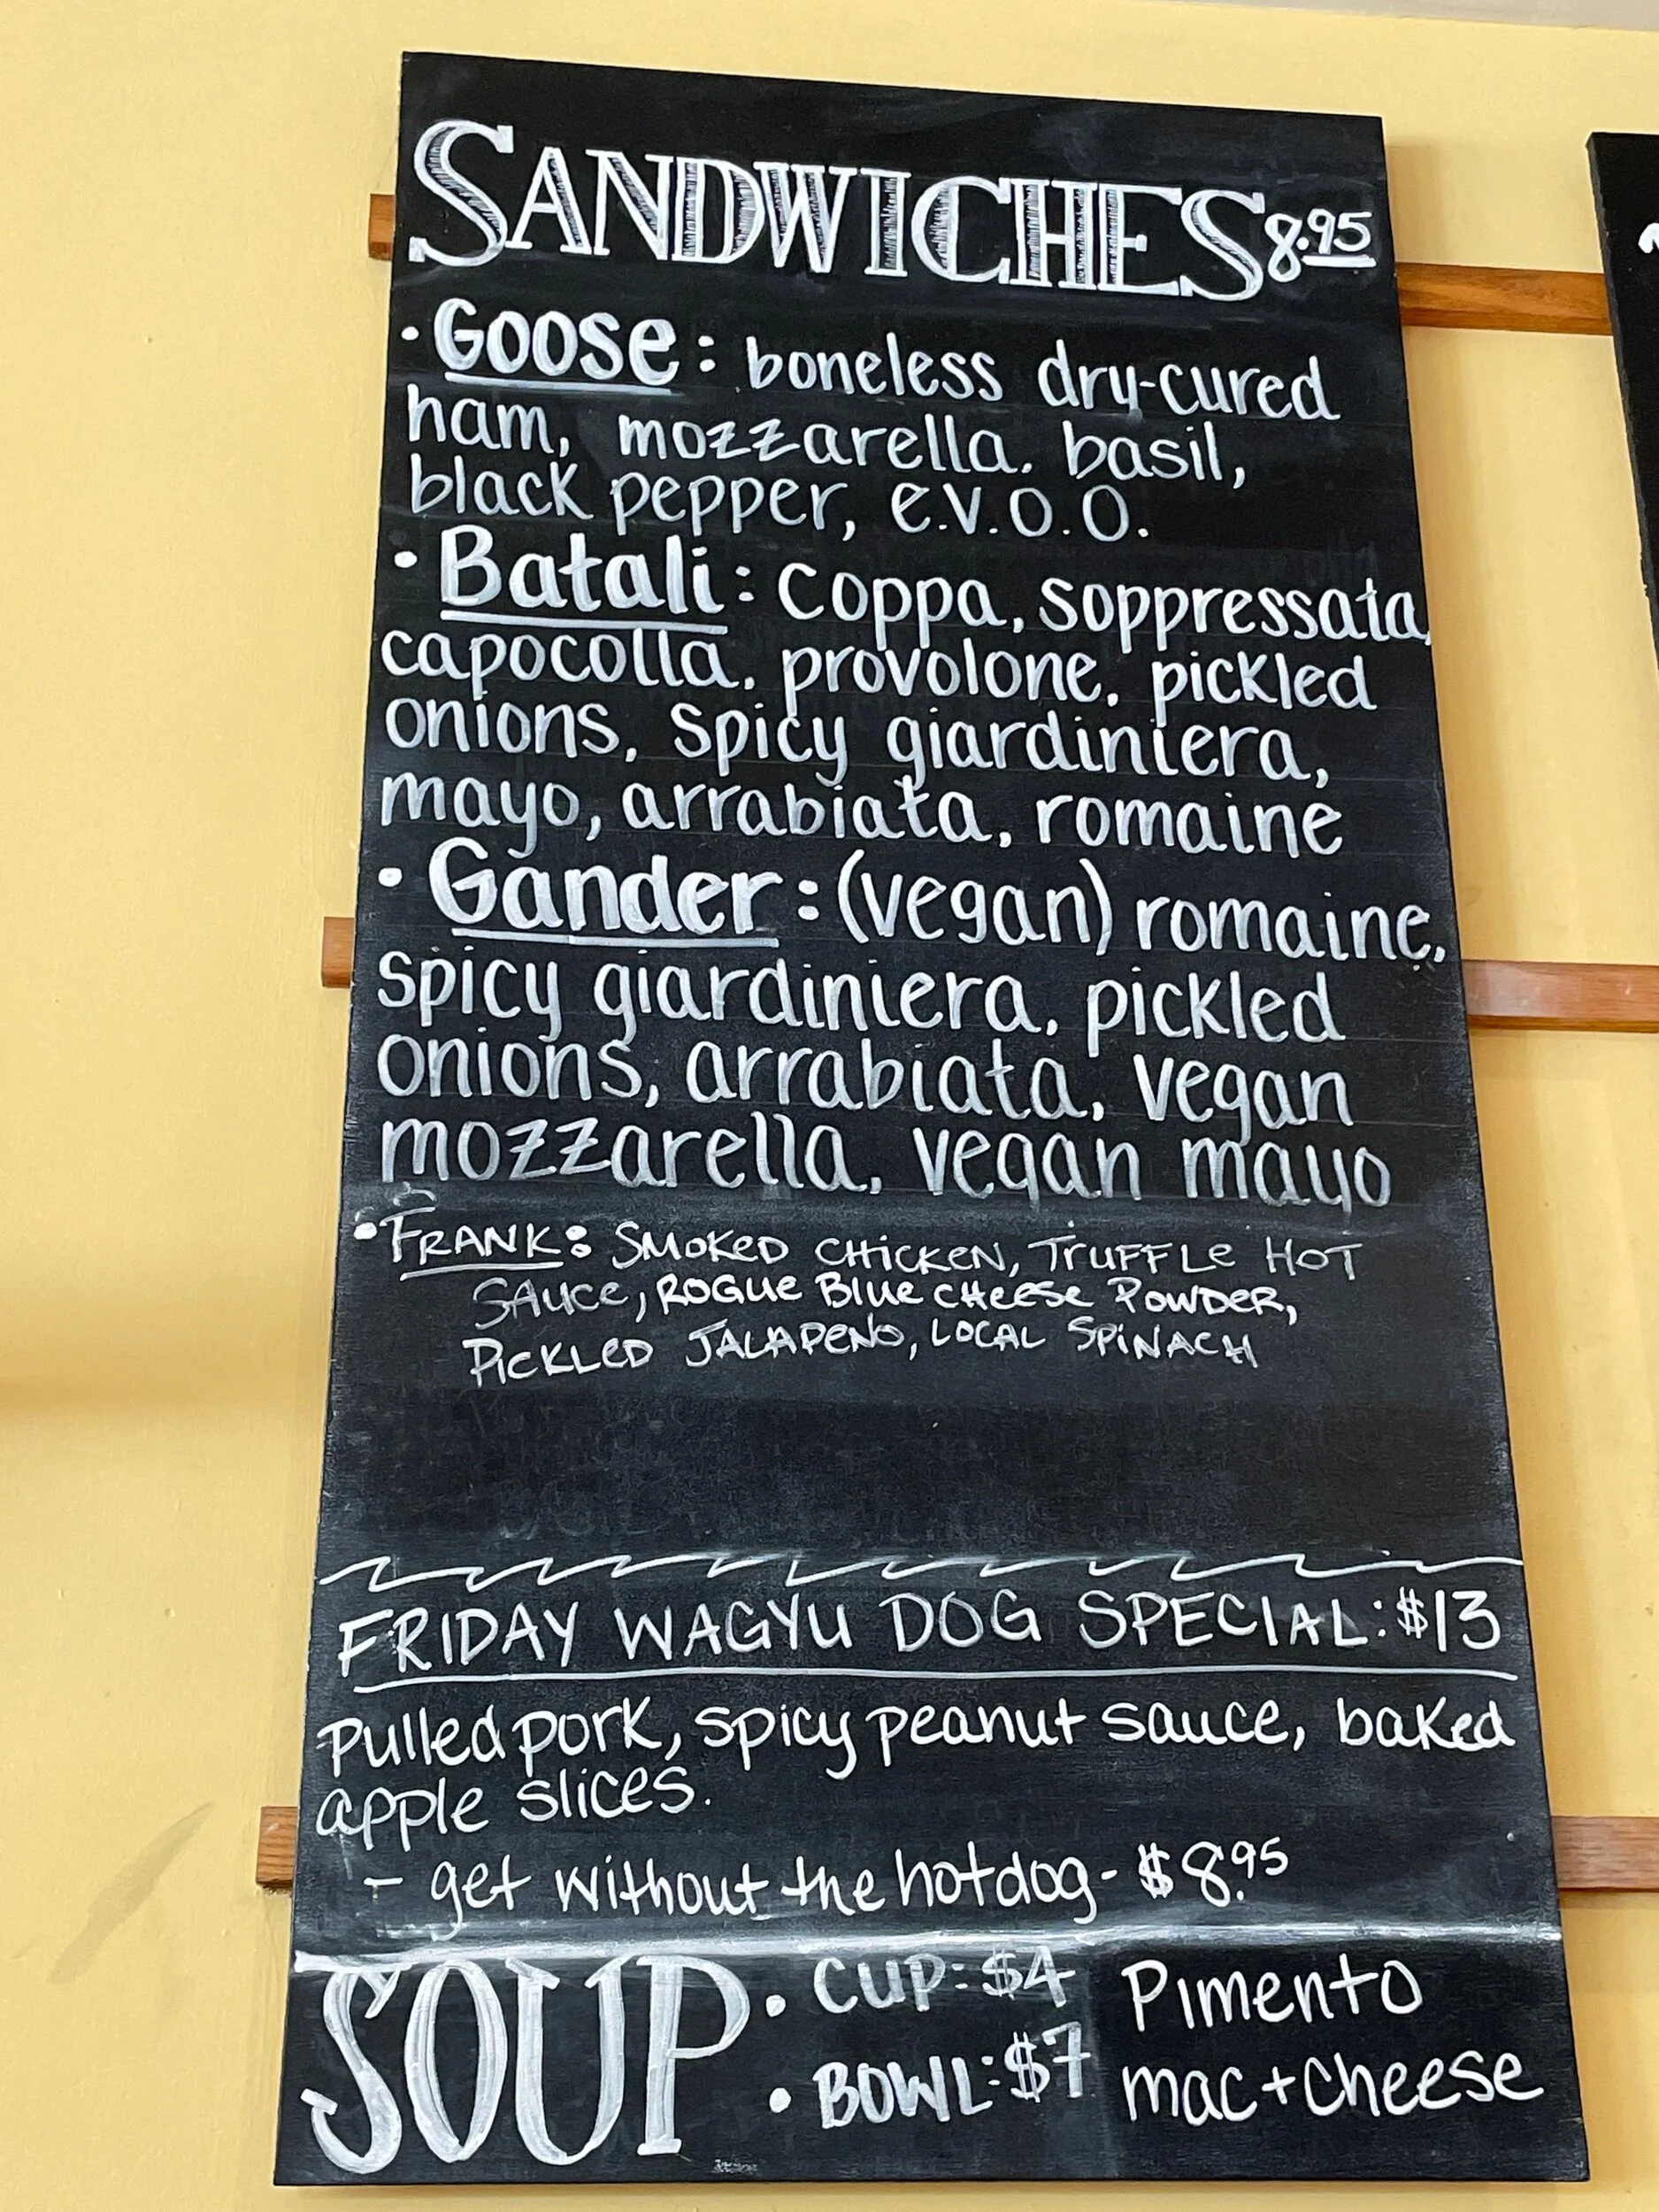 SANDWICHES 8.95
• Goose: boneless dry-cured
ham, mozzarella, basil,
black pepper, e.v.o.o.
• Batali: coppa, soppressata,
capocolla, provolone, pickled
onions, spicy giardiniera,
mayo, arrabiata, romaine
• Gander: (vegan) romaine,
spicy giardiniera, pickled
onions, arrabiata, vegan
mozzarella, vegan mayo
• FRANK: SMOKED CHICKEN, TRUFFLE HOT
SAUCE, ROGUE BLUE CHEESE POWDER,
PICKLED JALAPENO, LOCAL SPINACH
FRIDAY WAGYU DOG SPECIAL: $13
Pulled pork, spicy peanut sauce, baked
apple slices.
- get without the hotdog - $8.95
SOUP • CUP: $4 Pimento
• BOWL: $7 mac + cheese